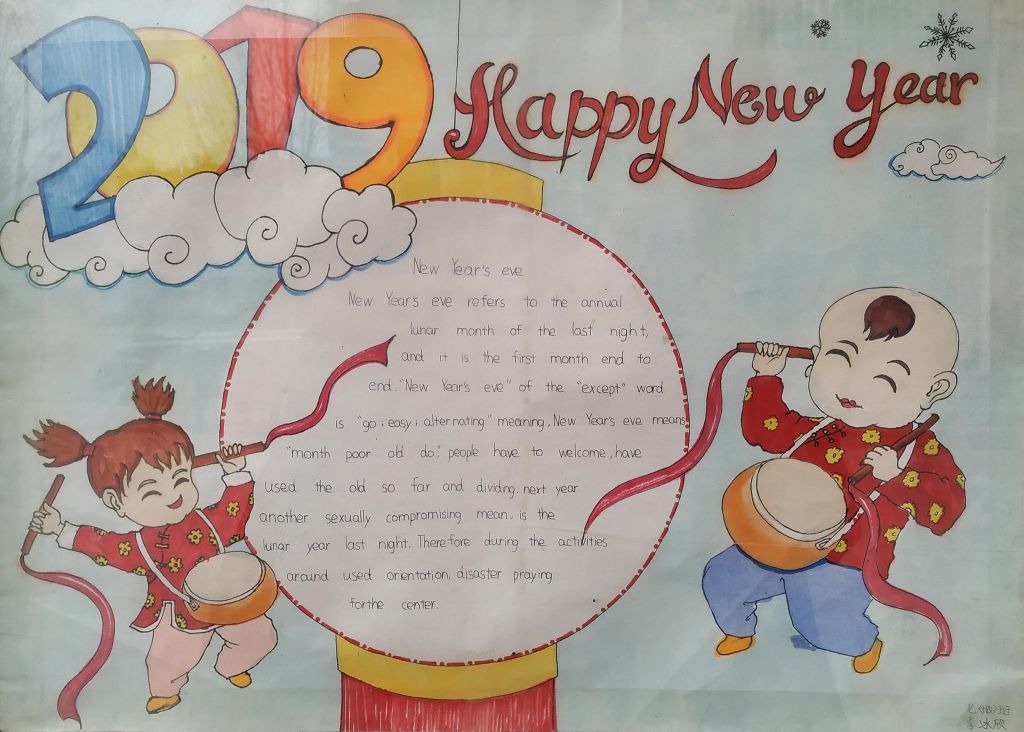 2019
Happy New Year
New Year's eve
New Year's eve refers to the annual
lunar month of the last night,
and it is the first month end to
end. "New Year's eve" of the "except" word
is "go; easy; alternating" meaning, New Year's eve means
"month poor old do". people have to welcome, have
used the old so far and dividing, next year
another sexually compromising mean, is the
lunar year last night. Therefore during the activities
around used orientation, disaster praying
forthe center.
冰欣